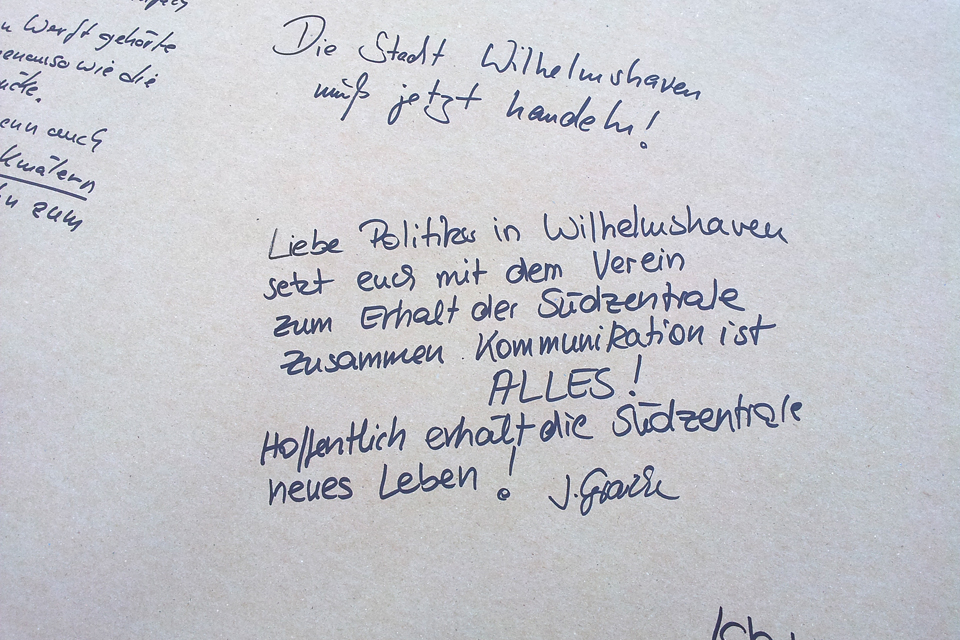 u Werft gehörte
genauso wie die
enn auch
kmälern
zum
Die Stadt Wilhelmshaven
muß jetzt handeln!
Liebe Politiker in Wilhelmshaven
setzt euch mit dem Verein
zum Erhalt der Südzentrale
zusammen. Kommunikation ist
ALLES!
Hoffentlich erhält die Südzentrale
neues Leben! J.
Ich